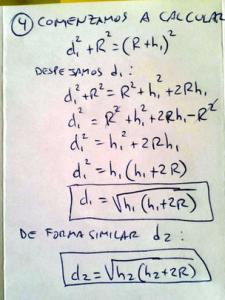 ④ COMENZAMOS A CALCULAR
d₁² + R² = (R + h₁)²
DESPEJAMOS d₁ :
d₁² + R² = R² + h₁² + 2Rh₁
d₁² = R² + h₁² + 2Rh₁ - R²
d₁² = h₁² + 2Rh₁
d₁² = h₁ (h₁ + 2R)
d₁ = √h₁ (h₁ + 2R)
DE FORMA SIMILAR d₂ :
d₂ = √h₂ (h₂ + 2R)